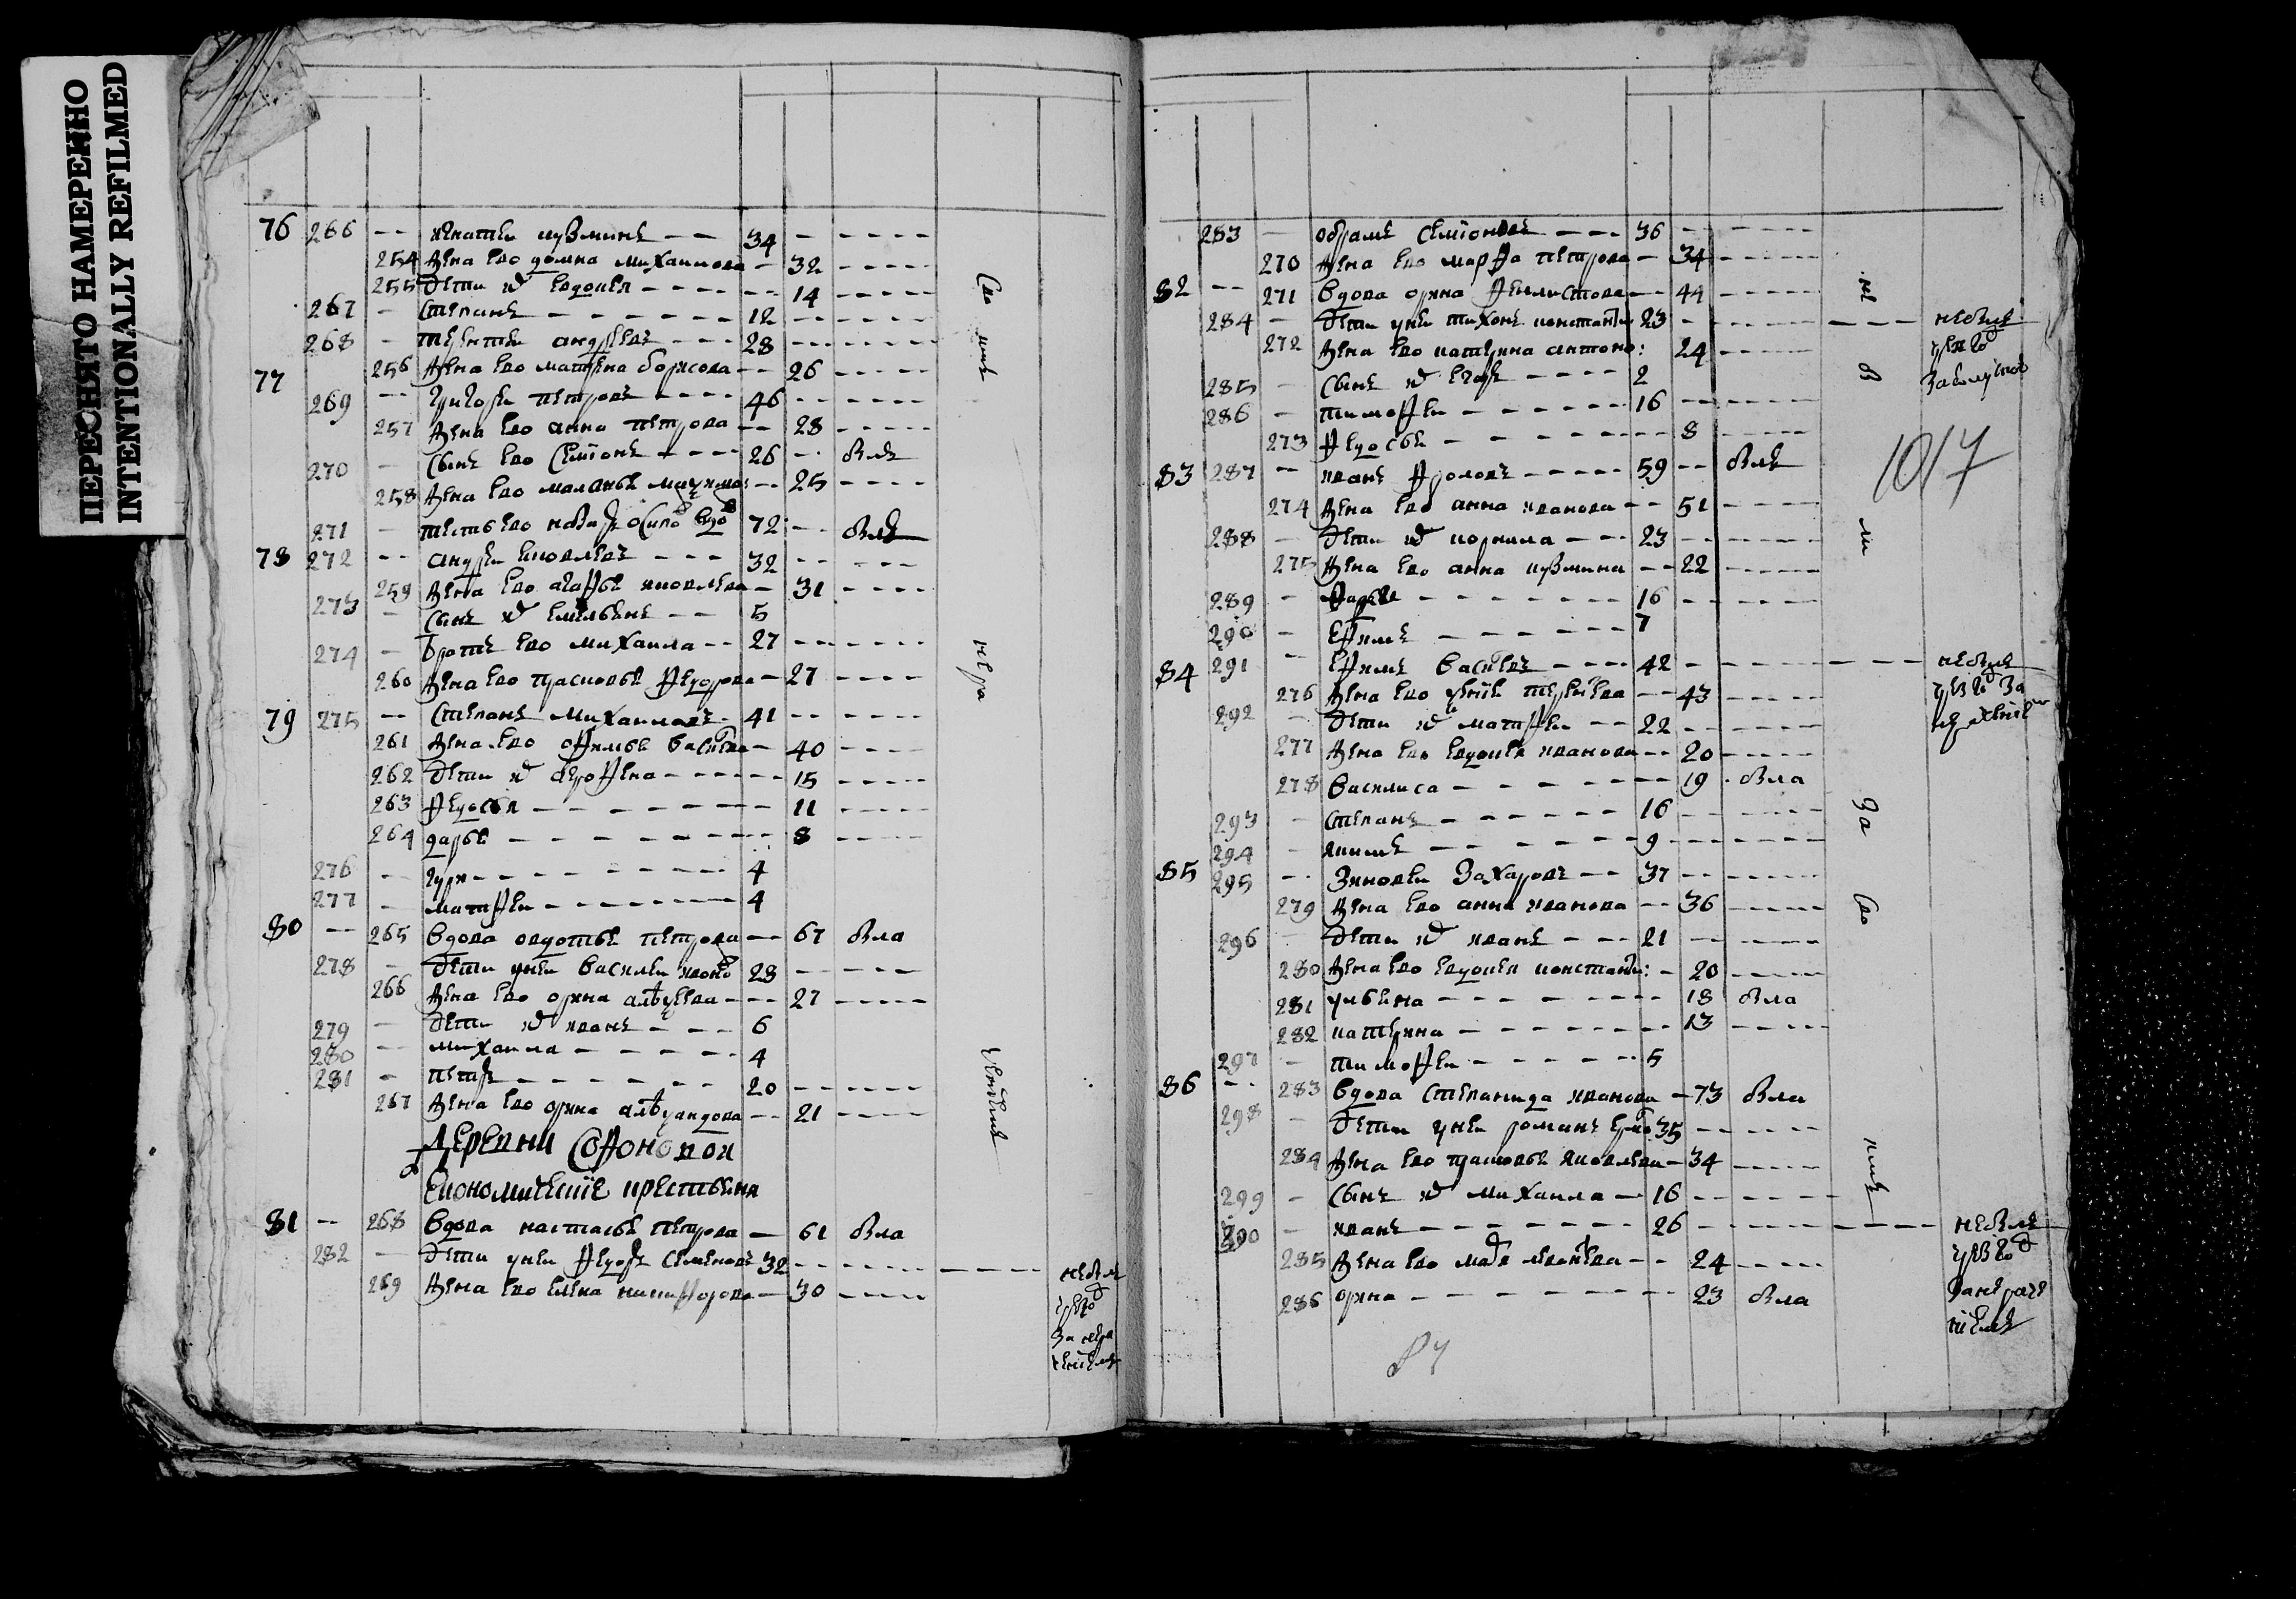 ПЕРЕСНЯТО НАМЕРЕННО
INTENTIONALLY REFILMED
76 266 -- игнатеи кузминъ -- 34
254 жена ево домна михаилова -- 32
255 дети их евдокея -- 14
267 степанъ -- 12
268 терентеи андреевъ -- 28
77 256 жена ево матрена борисова -- 26
269 григореи петровъ -- 46
257 жена ево анна петрова -- 28
270 сынъ ево семіонъ -- 26 -- былъ
258 жена ево маланья -- 25
271 тесть ево назаръ осипов вдов 72 -- былъ
78 272 -- андреи яковлевъ -- 32
259 жена ево агафья яковлева -- 31
273 сынъ их емельянъ -- 5
274 братъ ево михаила -- 27
260 жена ево прасковья федорова -- 27
79 275 -- степанъ михаиловъ -- 41
261 жена ево офимья василева -- 40
262 дети их аграфена -- 15
263 федосья -- 11
264 дарья -- 8
276 гури -- 4
277 матфеи -- 4
80 -- 265 вдова авдотья петрова -- 67 была
278 дети у неи василеи иванов 28
266 жена ево орина алексеева -- 27
279 дети их иванъ -- 6
280 михаила -- 4
281 петръ -- 20
267 жена ево орина александрова -- 21
деревни софоновои
економическіе крестьяня
81 -- 268 вдова настасья петрова -- 61 была
282 дети у неи федоръ семеновъ 32
269 жена ево елена никифорова -- 30
не был
за нера
283 -- абрамъ семіоновъ -- 36
270 жена ево марфа петрова -- 34
82 -- 271 вдова орина феклистова -- 44
284 дети у неи тихонъ константи 23
272 жена ево катерина антоно: 24
285 сынъ их егоръ -- 2
286 тимофеи -- 16
273 федосья -- 8
83 287 -- иванъ фроловъ -- 59 -- былъ
274 жена ево анна иванова -- 51
288 дети их корнила -- 23
275 жена ево анна кузмина -- 22
289 -- 16
290 ефимъ -- 7
84 291 ефимъ василевъ -- 42
276 жена ево -- 43
292 дети их матфеи -- 22
277 жена ево евдокея иванова -- 20
278 василиса -- 19 была
293 степанъ -- 16
294 якимъ -- 9
85 295 -- зиновеи захаровъ -- 37
279 жена ево анна иванова -- 36
296 дети их иванъ -- 21
280 жена ево евдокея константи: -- 20
281 ульяна -- 18 была
282 катерина -- 13
297 тимофеи -- 5
86 -- 283 вдова степанида иванова -- 73 была
298 дети у неи романъ 35
284 жена ево прасковья яковлева -- 34
299 сынъ их михаила -- 16
300 иванъ -- 26
285 жена ево -- 24
286 орина -- 23 была
не былъ
1017
не былъ
не былъ